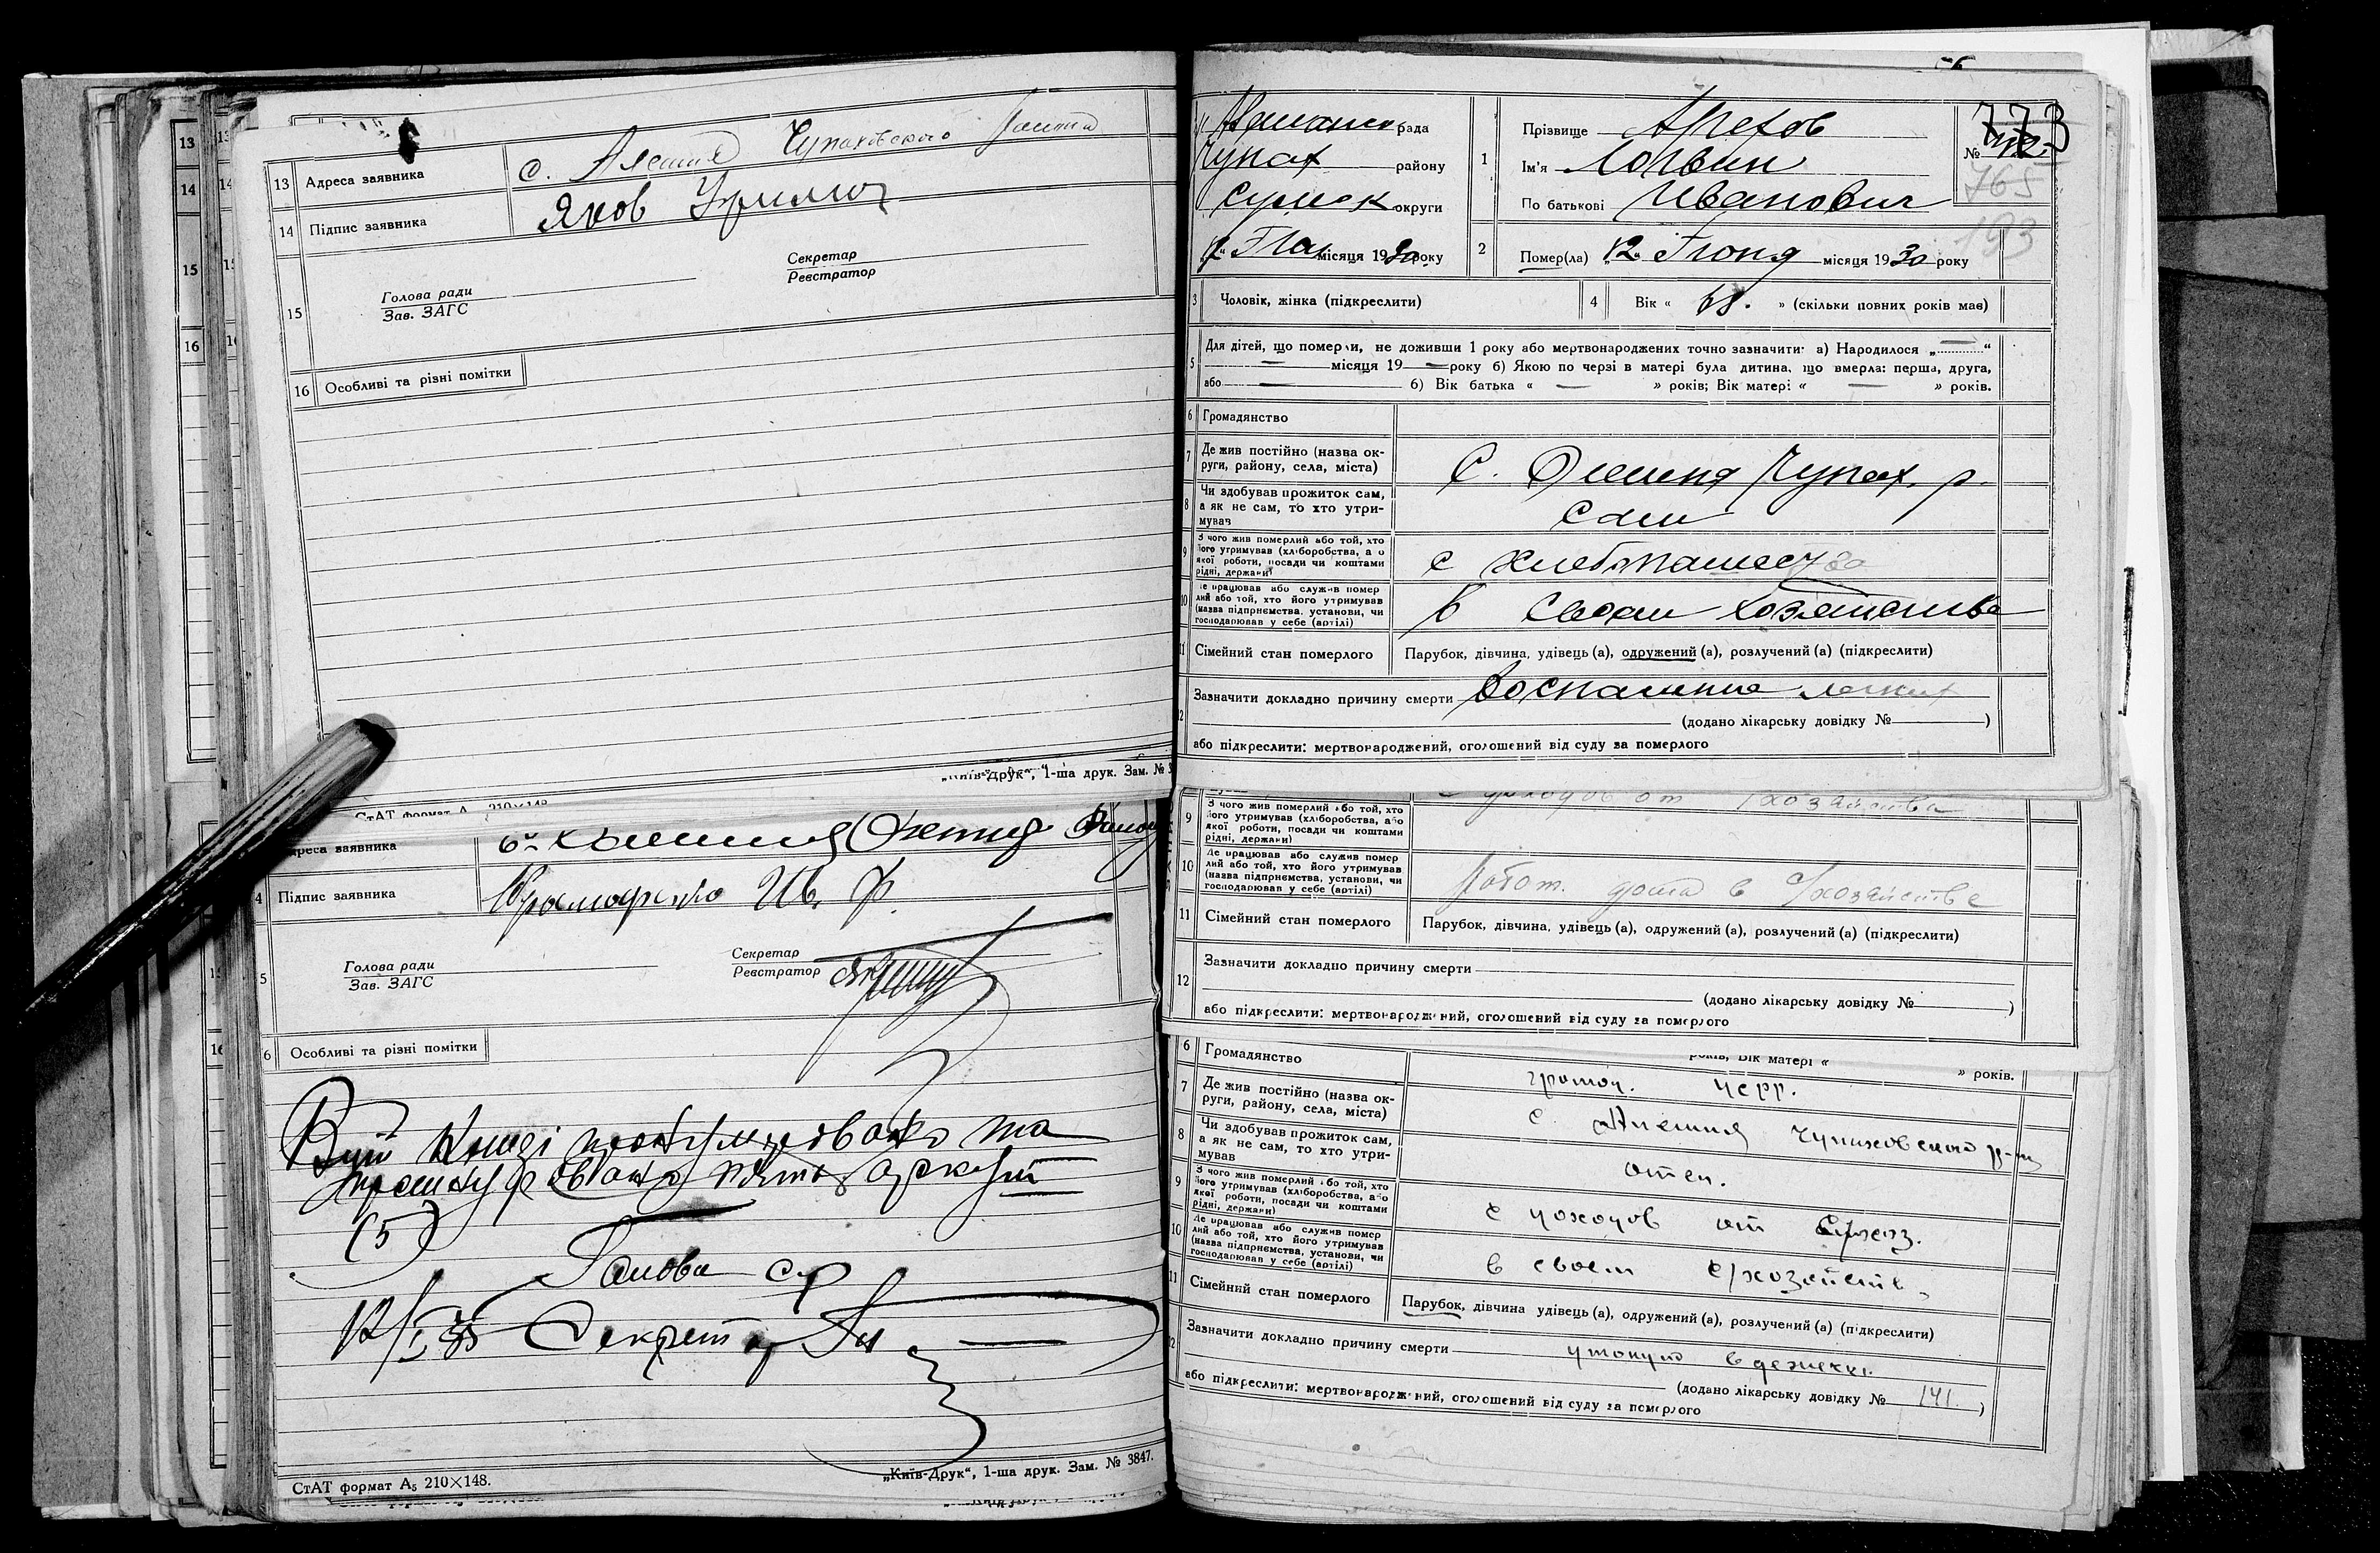 13 Адреса заявника с. Чупаховского
14 Підпис заявника Яков
15 Голова ради Зав. ЗАГС Секретар Реєстратор
16 Особливі та різні помітки
„Київ-Друк“, 1-ша друк. Зам. №
СтАТ формат А 210×148
Адреса заявника
4 Підпис заявника Ив. Ф.
5 Голова ради Зав. ЗАГС Секретар Реєстратор
6 Особливі та різні помітки
Вцій Книзі пронумеровано та
прошнуровано пять аркуш
(5)
Голова с/р
12/I Секретар
СтАТ формат А₅ 210×148.
„Київ-Друк“, 1-ша друк. Зам. № 3847.
13
14
15
16
рада
Чупах району
Сумск округи
місяця 1930 року
1 Прізвище
Ім'я Логвин
По батькові Иванович
№ 773
765
193
2 Помер(ла) „12“ Июня місяця 1930 року
3 Чоловік, жінка (підкреслити)
4 Вік « 68. » (скільки повних років має)
5 Для дітей, що померли, не доживши 1 року або мертвонароджених точно зазначити: а) Народилося „ — “
— місяця 19 — року б) Якою по черзі в матері була дитина, що вмерла: перша, друга,
або — б) Вік батька « — » років; Вік матері « — » років.
6 Громадянство
7 Де жив постійно (назва округи, району, села, міста) С. Чупах. р.
8 Чи здобував прожиток сам, а як не сам, то хто утримував Сам
9 З чого жив померлий або той, хто його утримував (хліборобства, або якої роботи, посади чи коштами рідні, держави) с хлебопашества
10 Де працював або служив помер лий або той, хто його утримував (назва підприємства, установи, чи господарював у себе (артілі) в своем хозяйстве
11 Сімейний стан померлого Парубок, дівчина, удівець (а), одружений (а), розлучений (а) (підкреслити)
12 Зазначити докладно причину смерти Воспаление легких
(додано лікарську довідку № )
або підкреслити: мертвонароджений, оголошений від суду за померлого
9 З чого жив померлий або той, хто його утримував (хліборобства, або якої роботи, посади чи коштами рідні, держави) с доходов от хозяйства
10 Де працював або служив помер лий або той, хто його утримував (назва підприємства, установи, чи господарював у себе (артілі) Работ. дома в с/хозяйстве
11 Сімейний стан померлого Парубок, дівчина, удівець (а), одружений (а), розлучений (а) (підкреслити)
12 Зазначити докладно причину смерти
(додано лікарську довідку № )
або підкреслити: мертвонароджений, оголошений від суду за померлого
років, Вік матері « » років.
6 Громадянство громад. УСРР.
7 Де жив постійно (назва округи, району, села, міста) с. Алешня Чупаховского р-на
8 Чи здобував прожиток сам, а як не сам, то хто утримував отец.
9 З чого жив померлий або той, хто його утримував (хліборобства, або якої роботи, посади чи коштами рідні, держави) с доходов от с/хоз.
10 Де працював або служив помер лий або той, хто його утримував (назва підприємства, установи, чи господарював у себе (артілі) в своем с/хозяйств.
11 Сімейний стан померлого Парубок, дівчина удівець (а), одружений (а), розлучений (а) (підкреслити)
12 Зазначити докладно причину смерти утонул
(додано лікарську довідку № 141. )
або підкреслити: мертвонароджений, оголошений від суду за померлого